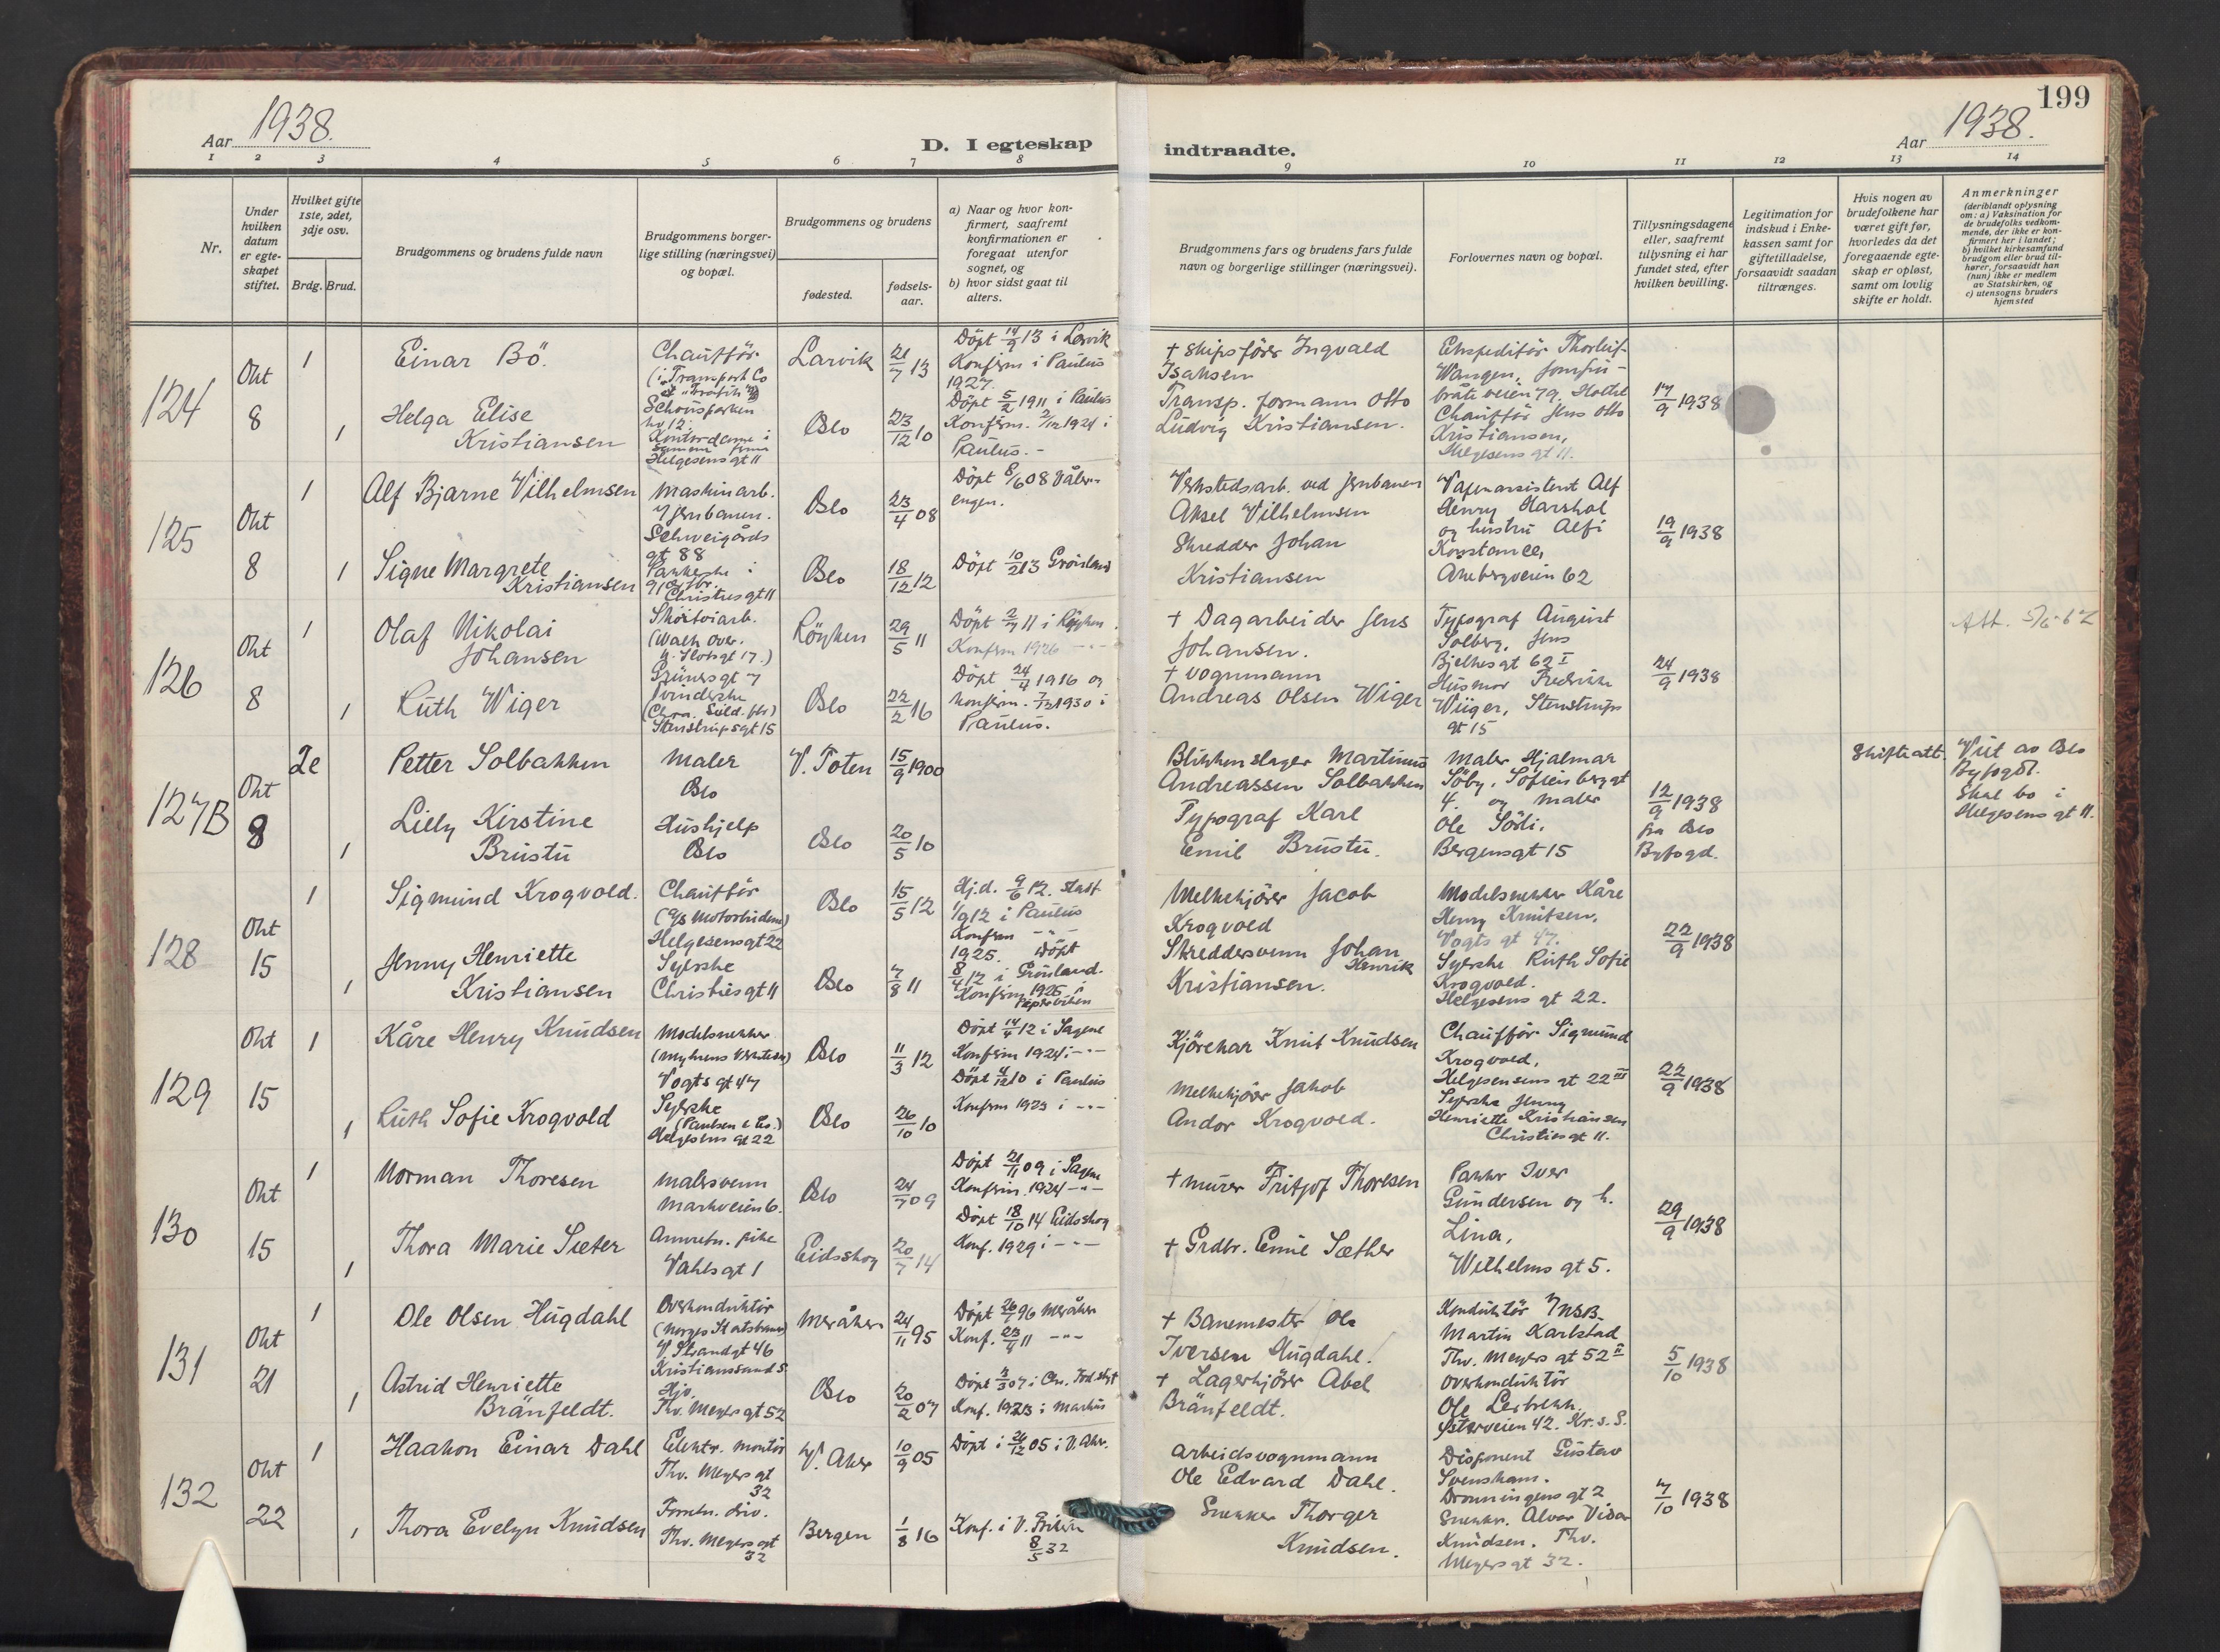 Aar 1938.
D. I egteskap
indtraadte.
Aar 1938.
199
1
2
3
4
5
6
7
8
9
10
11
12
13
14
Nr.
Under
hvilken
datum
er egte-
skapet
stiftet.
Hvilket gifte
1ste, 2det,
3dje osv.
Brdg. Brud.
Brudgommens og brudens fulde navn
Brudgommens borger-
lige stilling (næringsvei)
og bopæl.
Brudgommens og brudens
fødested.
fødsels-
aar.
a) Naar og hvor kon-
firmert, saafremt
konfirmationen er
foregaat utenfor
sognet, og
b) hvor sidst gaat til
alters.
Brudgommens fars og brudens fars fulde
navn og borgerlige stillinger (næringsvei).
Forlovernes navn og bopæl.
Tillysningsdagene
eller, saafremt
tillysning ei har
fundet sted, efter
hvilken bevilling.
Legitimation for
indskud i Enke-
kassen samt for
giftetilladelse,
forsaavidt saadan
tiltrænges.
Hvis nogen av
brudefolkene har
været gift før,
hvorledes da det
foregaaende egte-
skap er opløst,
samt om lovlig
skifte er holdt.
Anmerkninger
(deriblandt oplysning
om: a) Vaksination for
de brudefolks vedkom-
mende, der ikke er kon-
firmert her i landet;
b) hvilket kirkesamfund
brudgom eller brud til-
hører, forsaavidt han
(hun) ikke er medlem
av Statskirken, og
c) utensogns bruders
hjemsted
124
Okt
8
1
Einar Bö.
Chaufför
(i Transport Co
Schousparken
no 12.
Larvik
21/7 13
Döpt 14/9 13 i Larvik
Konfirm i Paulus
1927.
+ Skipsförer Ingvald
Isaksen
Ekspeditör Thorleif
Wangen,
17/9 1938
1
Helga Elise
Kristiansen
Kontordame i
samme firma
Helgesens gt 11
Oslo
23/12 10
Döpt 5/2 1911 i Paulus
Konfirm. 1924 i
Paulus. -
Transp. formann Otto
Ludvig Kristiansen.
Chaufför Jens Otto
Kristiansen,
Helgesens gt 11.
125
Okt
8
1
Alf Bjarne Vilhelmsen
Maskinarb.
v/ Jernbanen.
Schweigårds
gt 88
Oslo
23/4 08
Döpt 8/6 08 Våler-
engen.
Verkstedsarb. ved Jernbanen
Aksel Vilhelmsen
Våpenassistent Alf
Henry Harshol
og hustru Alfi
Konstance,
Akebergveien 62
19/9 1938
1
Signe Margrete
Kristiansen
Pakkerske i
Christies gt 11
Oslo
18/12 12
Döpt 10/2 13 Grönland
Skredder Johan
Kristiansen
126
Okt
8
1
Olaf Nikolai
Johansen
Skotöiarb.
Grüners gt 7
Röyken
29/5 11
Döpt 2/7 11 i Röyken
Konfirm 1926 - " -
+ Dagarbeider Jens
Johansen.
Typograf August
Solberg, Jens
Bjelkes gt 62 I
24/9 1938
Att. 5/6-62
1
Ruth Wiger
Stenstrups gt 15
Oslo
22/2 16
Döpt 24/4 1916 og
konfirm. 1930 i
Paulus.
+ Vognmann
Andreas Olsen Wiger
Husmor Fredrikke
Wiger, Stenstrups
gt 15
127B
Okt
8
2e
Petter Solbakken
Maler
Oslo
V. Toten
15/9 1900
Blikkenslager Martinus
Andreassen Solbakken
Maler Hjalmar
Söby, Sofienberg gt
4. og maler
Ole Södi,
Bergens gt 15
12/9 1938
fra Oslo
Byfogd.
Skifteatt.
Viet av Oslo
Byfogd.
Skal bo i
Helgesens gt 11.
1
Lilly Kirstine
Brustu
Hushjelp
Oslo
Oslo
20/5 10
Typograf Karl
Emil Brustu.
128
Okt
15
1
Sigmund Krogvold.
Chaufför
(A/S Motorbudene)
Helgesens gt 22
Oslo
15/5 12
Hj.d. 9/6 12. stadf
1/9 12 i Paulus
Konfirm - " -
1925.
Melkekjörer Jacob
Krogvold
Modelsnekker Kåre
Henry Knutsen,
Vogts gt 47.
22/9 1938
1
Jenny Henriette
Kristiansen
Syerske
Christies gt 11
Oslo
7/8 11
Döpt
8/4 12 i Grönland.
Konfirm 1926 i
Piperviken
Skreddersvenn Johan
Henrik
Kristiansen.
Syerske Ruth Sofie
Krogvold.
Helgesens gt 22.
129
Okt
15
1
Kåre Henry Knudsen
Modelsnekker
(Myhrens Verksted)
Vogts gt 47
Oslo
11/3 12
Döpt 14/4 12 i Sagene
Konfirm 1924 i - " -
Kjörekar Knut Knudsen
Chaufför Sigmund
Krogvold,
Helgensens gt 22 III
22/9 1938
1
Ruth Sofie Krogvold
Syerske
(Paulsen & Co.)
Helgesens gt 22
Oslo
26/10 10
Döpt 4/12 10 i Paulus
Konfirm 1925 i - " -
Melkekjörer Jakob
Andor Krogvold.
Syerske Jenny
Henriette Kristiansen
Christies gt 11.
130
Okt
15
1
Norman Thoresen
Malersvenn
Markveien 6.
Oslo
24/7 09
Döpt 21/11 09 i Sagene
Konfirm. 1924 - " -
+ Murer Fritjof Thoresen
Pakker Iver
Gundersen og h.
Lina,
Wilhelms gt 5.
29/9 1938
1
Thora Marie Sæter
Anretn. pike
Vahls gt 1
Eidsskog
20/7 14
Döpt 18/10 14 Eidsskog
Konf. 1929 i - " -
+ Grdbr. Emil Sæther
131
Okt
21
1
Ole Olsen Hugdahl
Overkonduktör
(Norges Statsbaner)
V. Strandgt 46
Kristianssand S.
Meråker
24/11 95
Döpt 26/7 96 Meråker
Konf. 23/4 11 - " -
+ Banemester Ole
Iversen Hugdahl.
Konduktör v/NSB.
Martin Karlstad
Thv. Meyers gt 52 II
5/10 1938
1
Astrid Henriette
Bränfeldt.
Thv. Meyers gt 52
Oslo
20/2 07
Konf. 1923 i Markus
+ Lagerkjörer Abel
Bränfeldt.
Overkonduktör
Ole Lerbekk.
Østerveien 42. Kr.s.S.
132
Okt
22
1
Haakon Einar Dahl
Elektr. montör
Thv. Meyers gt
32
V. Aker
10/9 05
Döpt i 26/12 05 i V. Aker.
Arbeidsvognmann
Ole Edvard Dahl.
Disponent Gustav
Svensham.
Dronningens gt 2
7/10 1938
1
Thora Evelyn Knudsen
Forretn. driv.
Thv. Meyers gt
32
Bergen
1/8 16
Konf. i V. Frikirke
8/5 32
Snekker Thorger
Knudsen.
Snekker. Alvar Vidar
Knudsen. Thv.
Meyers gt 32.